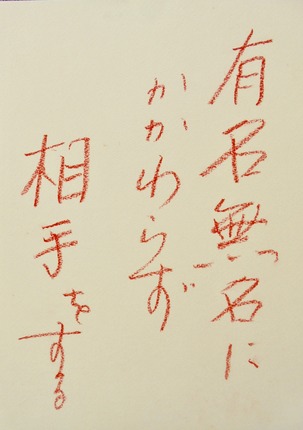 有名無名に
かかわらず
相手をする